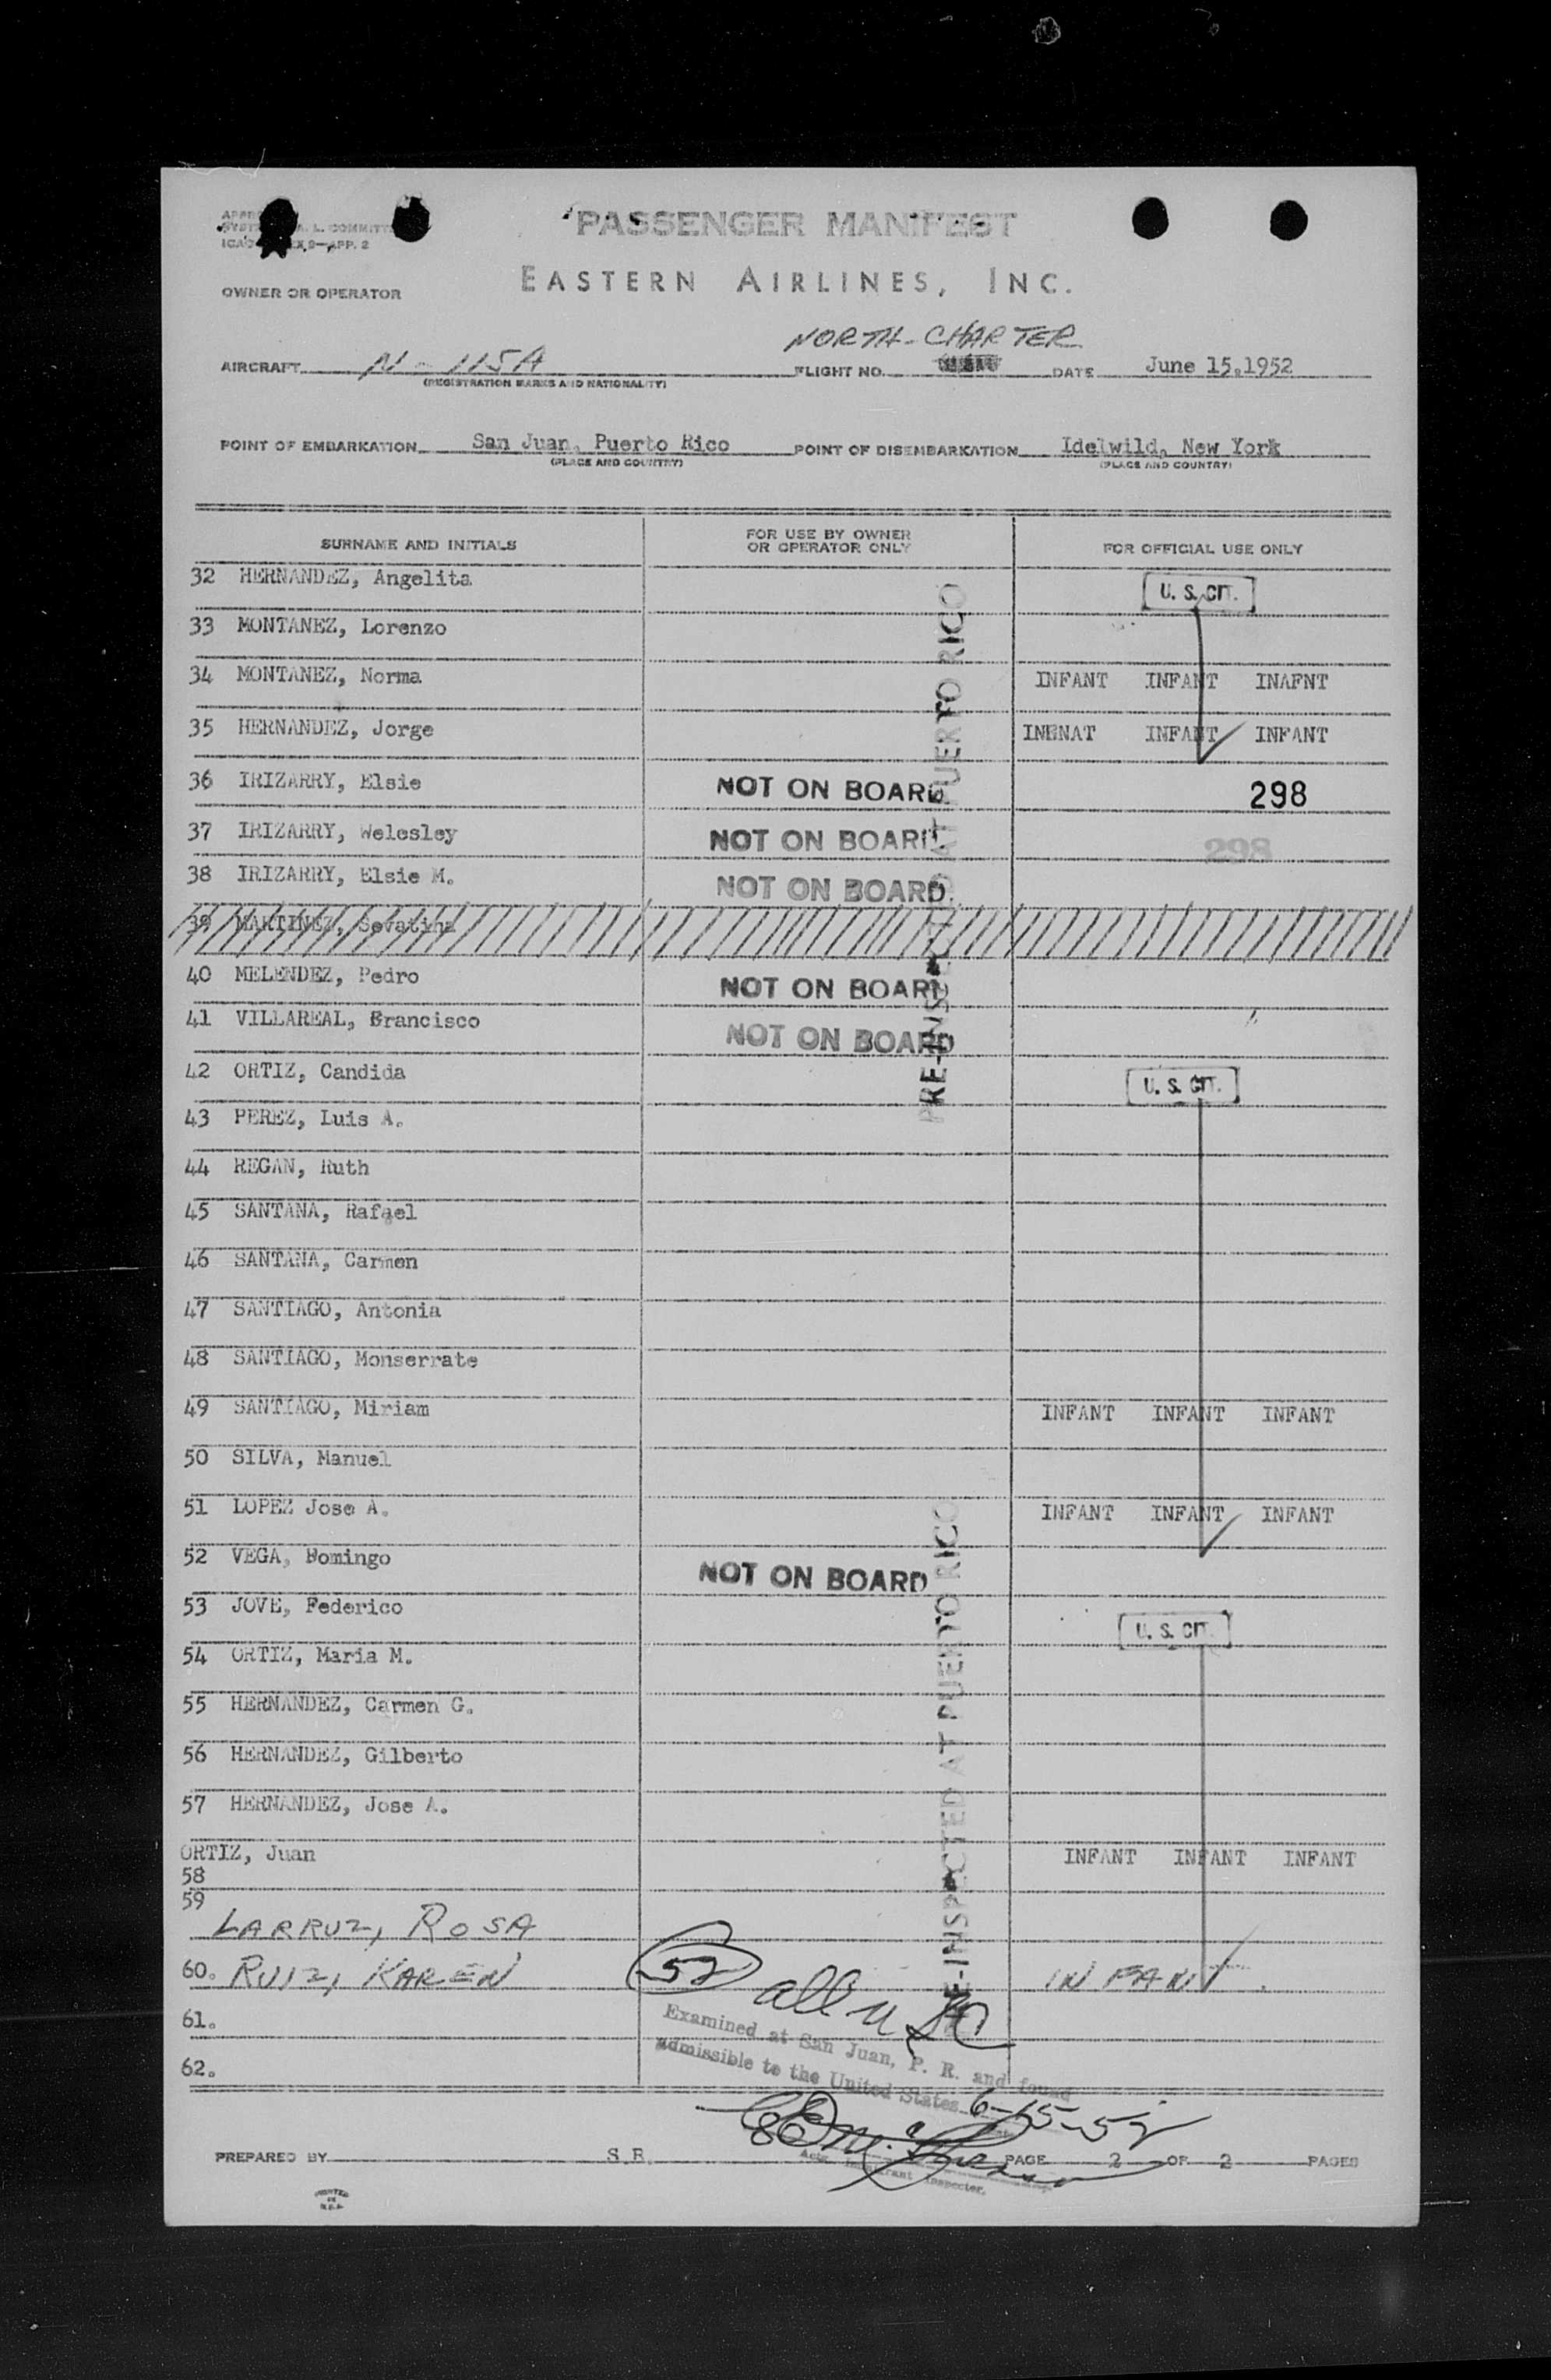 PASSENGER MANIFEST
L. COMMITT
ICAO 9—APP. 2
EASTERN AIRLINES, INC.
OWNER OR OPERATOR
NORTH-CHARTER
AIRCRAFT N-115A FLIGHT NO. DATE June 15,1952
(REGISTRATION MARKS AND NATIONALITY)
POINT OF EMBARKATION San Juan, Puerto Rico POINT OF DISEMBARKATION Idelwild, New York
(PLACE AND COUNTRY) (PLACE AND COUNTRY)
SURNAME AND INITIALS FOR USE BY OWNER OR OPERATOR ONLY FOR OFFICIAL USE ONLY
32 HERNANDEZ, Angelita U. S. CIT.
33 MONTANEZ, Lorenzo
34 MONTANEZ, Norma INFANT INFANT INAFNT
35 HERNANDEZ, Jorge INENAT INFANT INFANT
36 IRIZARRY, Elsie NOT ON BOARD 298
37 IRIZARRY, Welesley NOT ON BOARD 298
38 IRIZARRY, Elsie M. NOT ON BOARD
39 MARTINEZ, Sevatina
40 MELENDEZ, Pedro NOT ON BOARD
41 VILLAREAL, Francisco NOT ON BOARD
PRE-INSPECTED AT PUERTO RICO
42 ORTIZ, Candida U. S. CIT.
43 PEREZ, Luis A.
44 REGAN, Ruth
45 SANTANA, Rafael
46 SANTANA, Carmen
47 SANTIAGO, Antonia
48 SANTIAGO, Monserrate
49 SANTIAGO, Miriam INFANT INFANT INFANT
50 SILVA, Manuel
51 LOPEZ Jose A. INFANT INFANT INFANT
52 VEGA, Domingo NOT ON BOARD
53 JOVE, Federico U. S. CIT.
54 ORTIZ, Maria M.
55 HERNANDEZ, Carmen G.
56 HERNANDEZ, Gilberto
57 HERNANDEZ, Jose A.
PRE-INSPECTED AT PUERTO RICO
ORTIZ, Juan INFANT INFANT INFANT
58
59
LARRUZ, ROSA
60. RUIZ, KAREN 52 INFANT
all u SC
61.
62.
Examined at San Juan, P. R. and found
admissible to the United States 6-15-52
PREPARED BY S.R. PAGE 2 OF 2 PAGES
Actg. Immigrant Inspector.
PRINTED
IN
U.S.A.